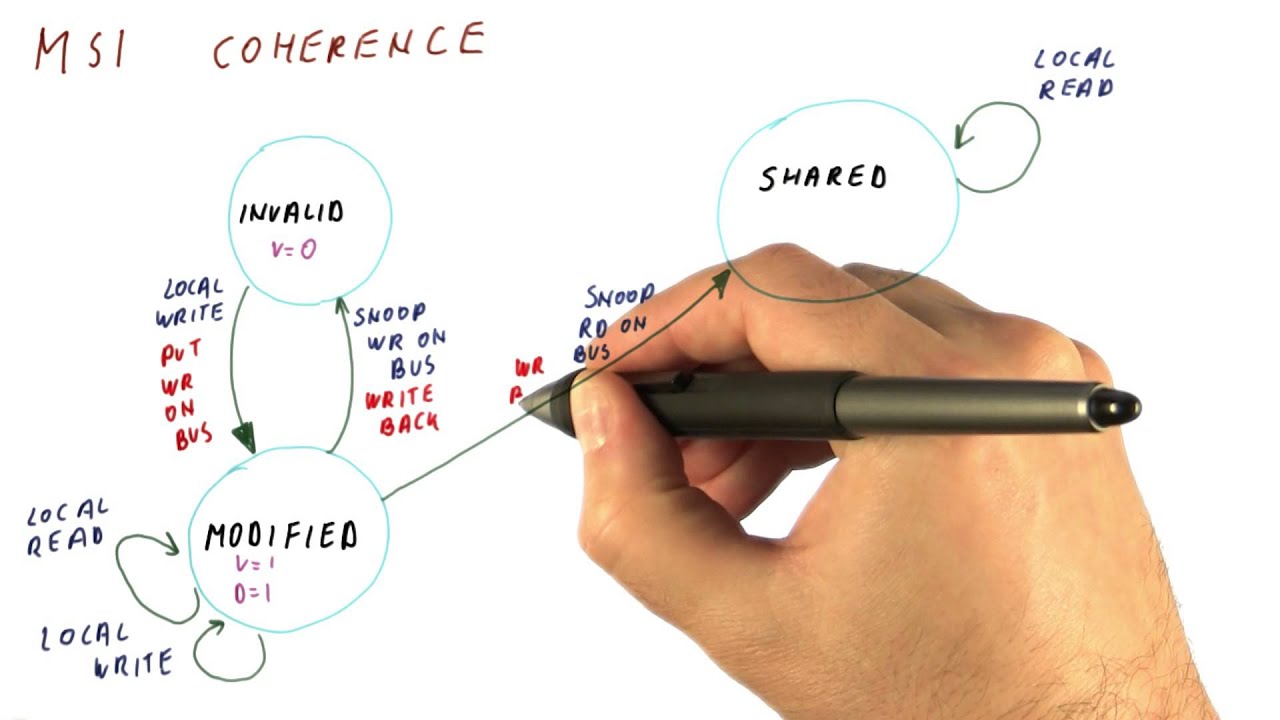 MSI COHERENCE
LOCAL
READ
SHARED
INVALID
V=0
LOCAL
WRITE
PUT
WR
ON
BUS
SNOOP
WR ON
BUS
WRITE
BACK
SNOOP
RD ON
BUS
WR
MODIFIED
V=1
D=1
LOCAL
READ
LOCAL
WRITE